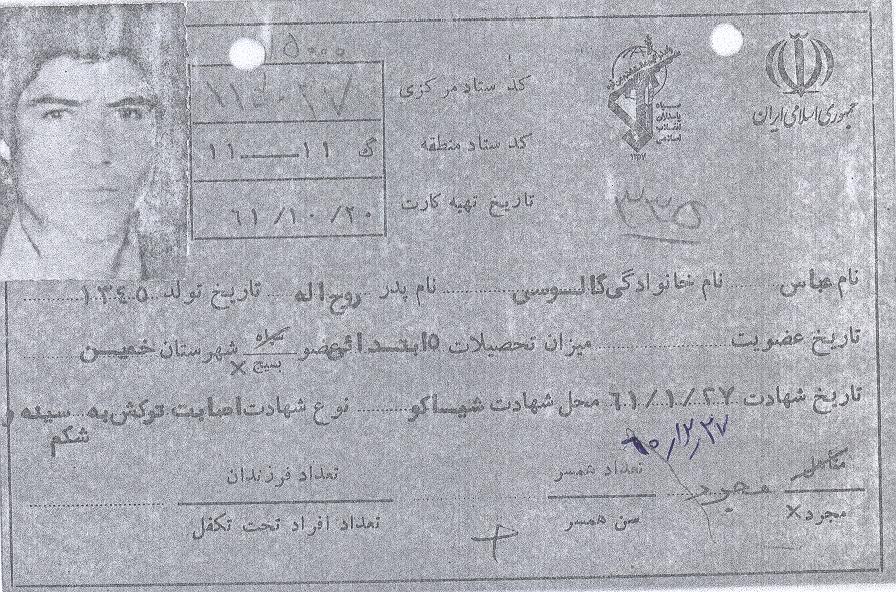 ۱۵۰۰۰
جمهوری اسلامی ایران
سپاه پاسداران انقلاب اسلامی
۱۳۵۷
کد ستاد مرکزی
کد ستاد منطقه گ ۱۱ــــ۱۱
تاریخ تهیه کارت ۶۱/۱۰/۲۰
۳۳۵
نام عباس نام خانوادگی گالـوسی نام پدر روح اله تاریخ تولد ۱۳۴۵
تاریخ عضویت میزان تحصیلات ۵ ابتدائی عضو سپاه بسیج × شهرستان خمین
تاریخ شهادت ۶۱/۱/۲۷ محل شهادت شیاکو نوع شهادت اصابت ترکش به سینه و
شکم
۶۰/۱۲/۲۷
متأهل مجرد تعداد همسر تعداد فرزندان
مجرد × سن همسر تعداد افراد تحت تکفل